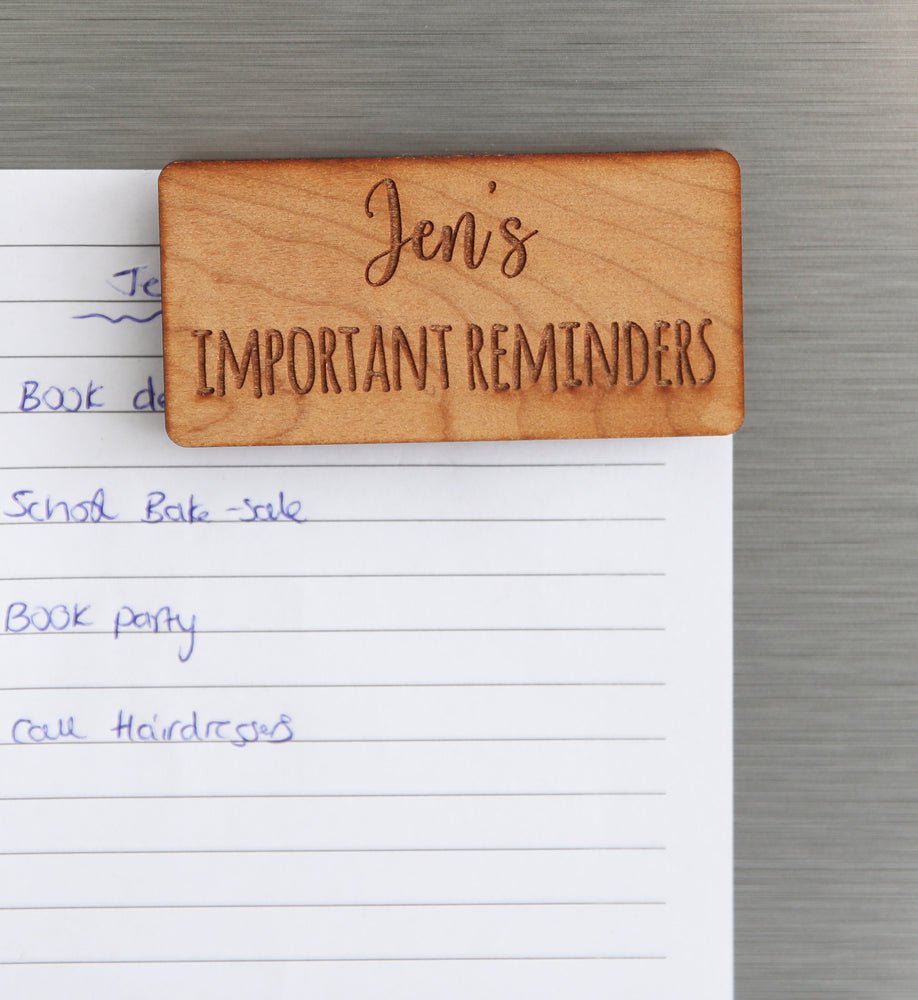 Jen's
IMPORTANT REMINDERS
Book
School Bake-sale
Book party
Call Hairdressers